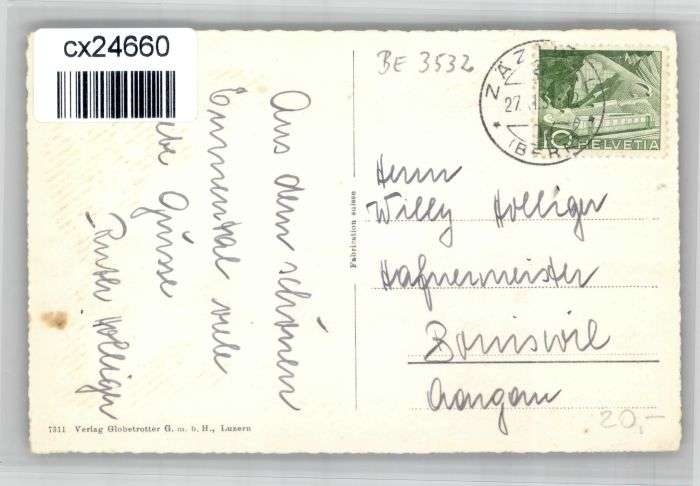 cx24660
BE 3532
ZÄZ
27.
(BERN)
10 HELVETIA
Aus dem schönen
Emmental viele
liebe Grüsse
Ruth Holliger
Fabrication suisse
Herrn
Willy Holliger
Hafnermeister
Boniswil
Aargau
20,-
7311 Verlag Globetrotter G. m. b. H., Luzern